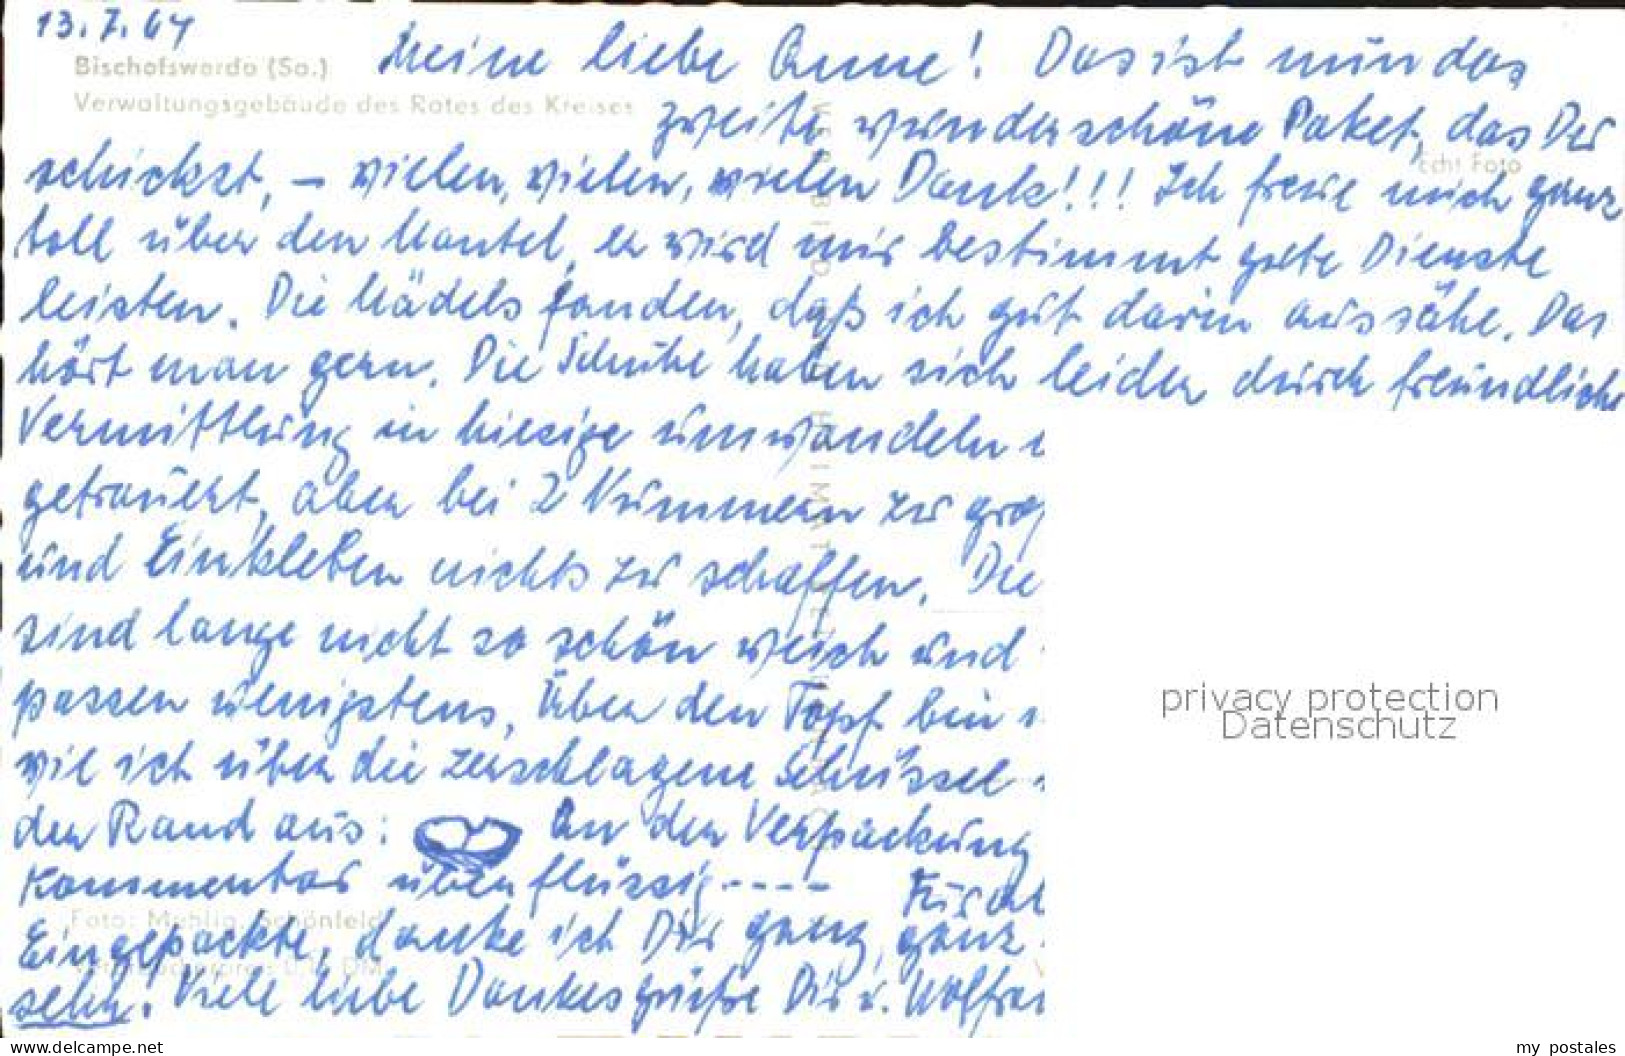 13.7.64
Bischofswerda (Sa.)
Verwaltungsgebäude des Rates des Kreises
Echt Foto
Meine liebe Anne! Das ist nun das
zweite wunderschöne Paket, das Du
schickst, – vielen, vielen, vielen Dank!!! Ich freue mich ganz
toll über den Mantel, er wird mir bestimmt gute Dienste
leisten. Die Mädels fanden, daß ich gut darin aussähe. Das
hört man gern. Die Schuhe haben sich leider durch freundliche
Vermittlung in hiesige umwandeln
getrauert, aber bei 2 Nummern zu
und Einkleben nichts zu schaffen. Die
sind lange nicht so schön weich und
passen wenigstens. Über den Topf bin
wie ich über die zerschlagene Schüssel
der Rand aus: An der Verpackung
Kommentar überflüssig----- Für
Eingepackte, danke ich Dir ganz, ganz
sehr! Viele liebe Dankesgrüße Dir u.
Foto: Mehlig, Schönfeld
privacy protection
Datenschutz
www.delcampe.net
my postales